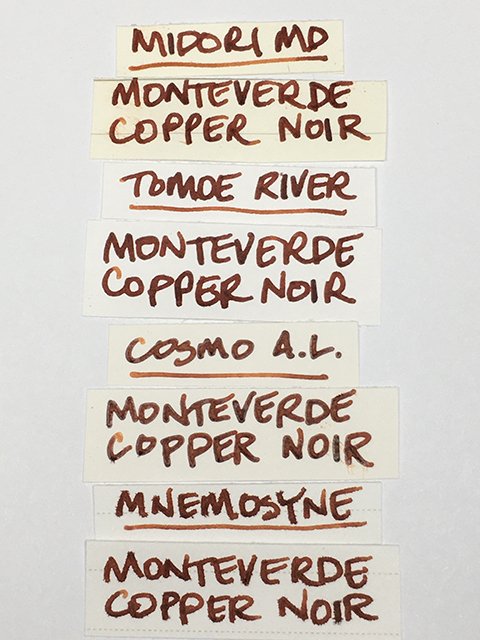 MIDORI MD
MONTEVERDE
COPPER NOIR
TOMOE RIVER
MONTEVERDE
COPPER NOIR
COSMO A.L.
MONTEVERDE
COPPER NOIR
MNEMOSYNE
MONTEVERDE
COPPER NOIR